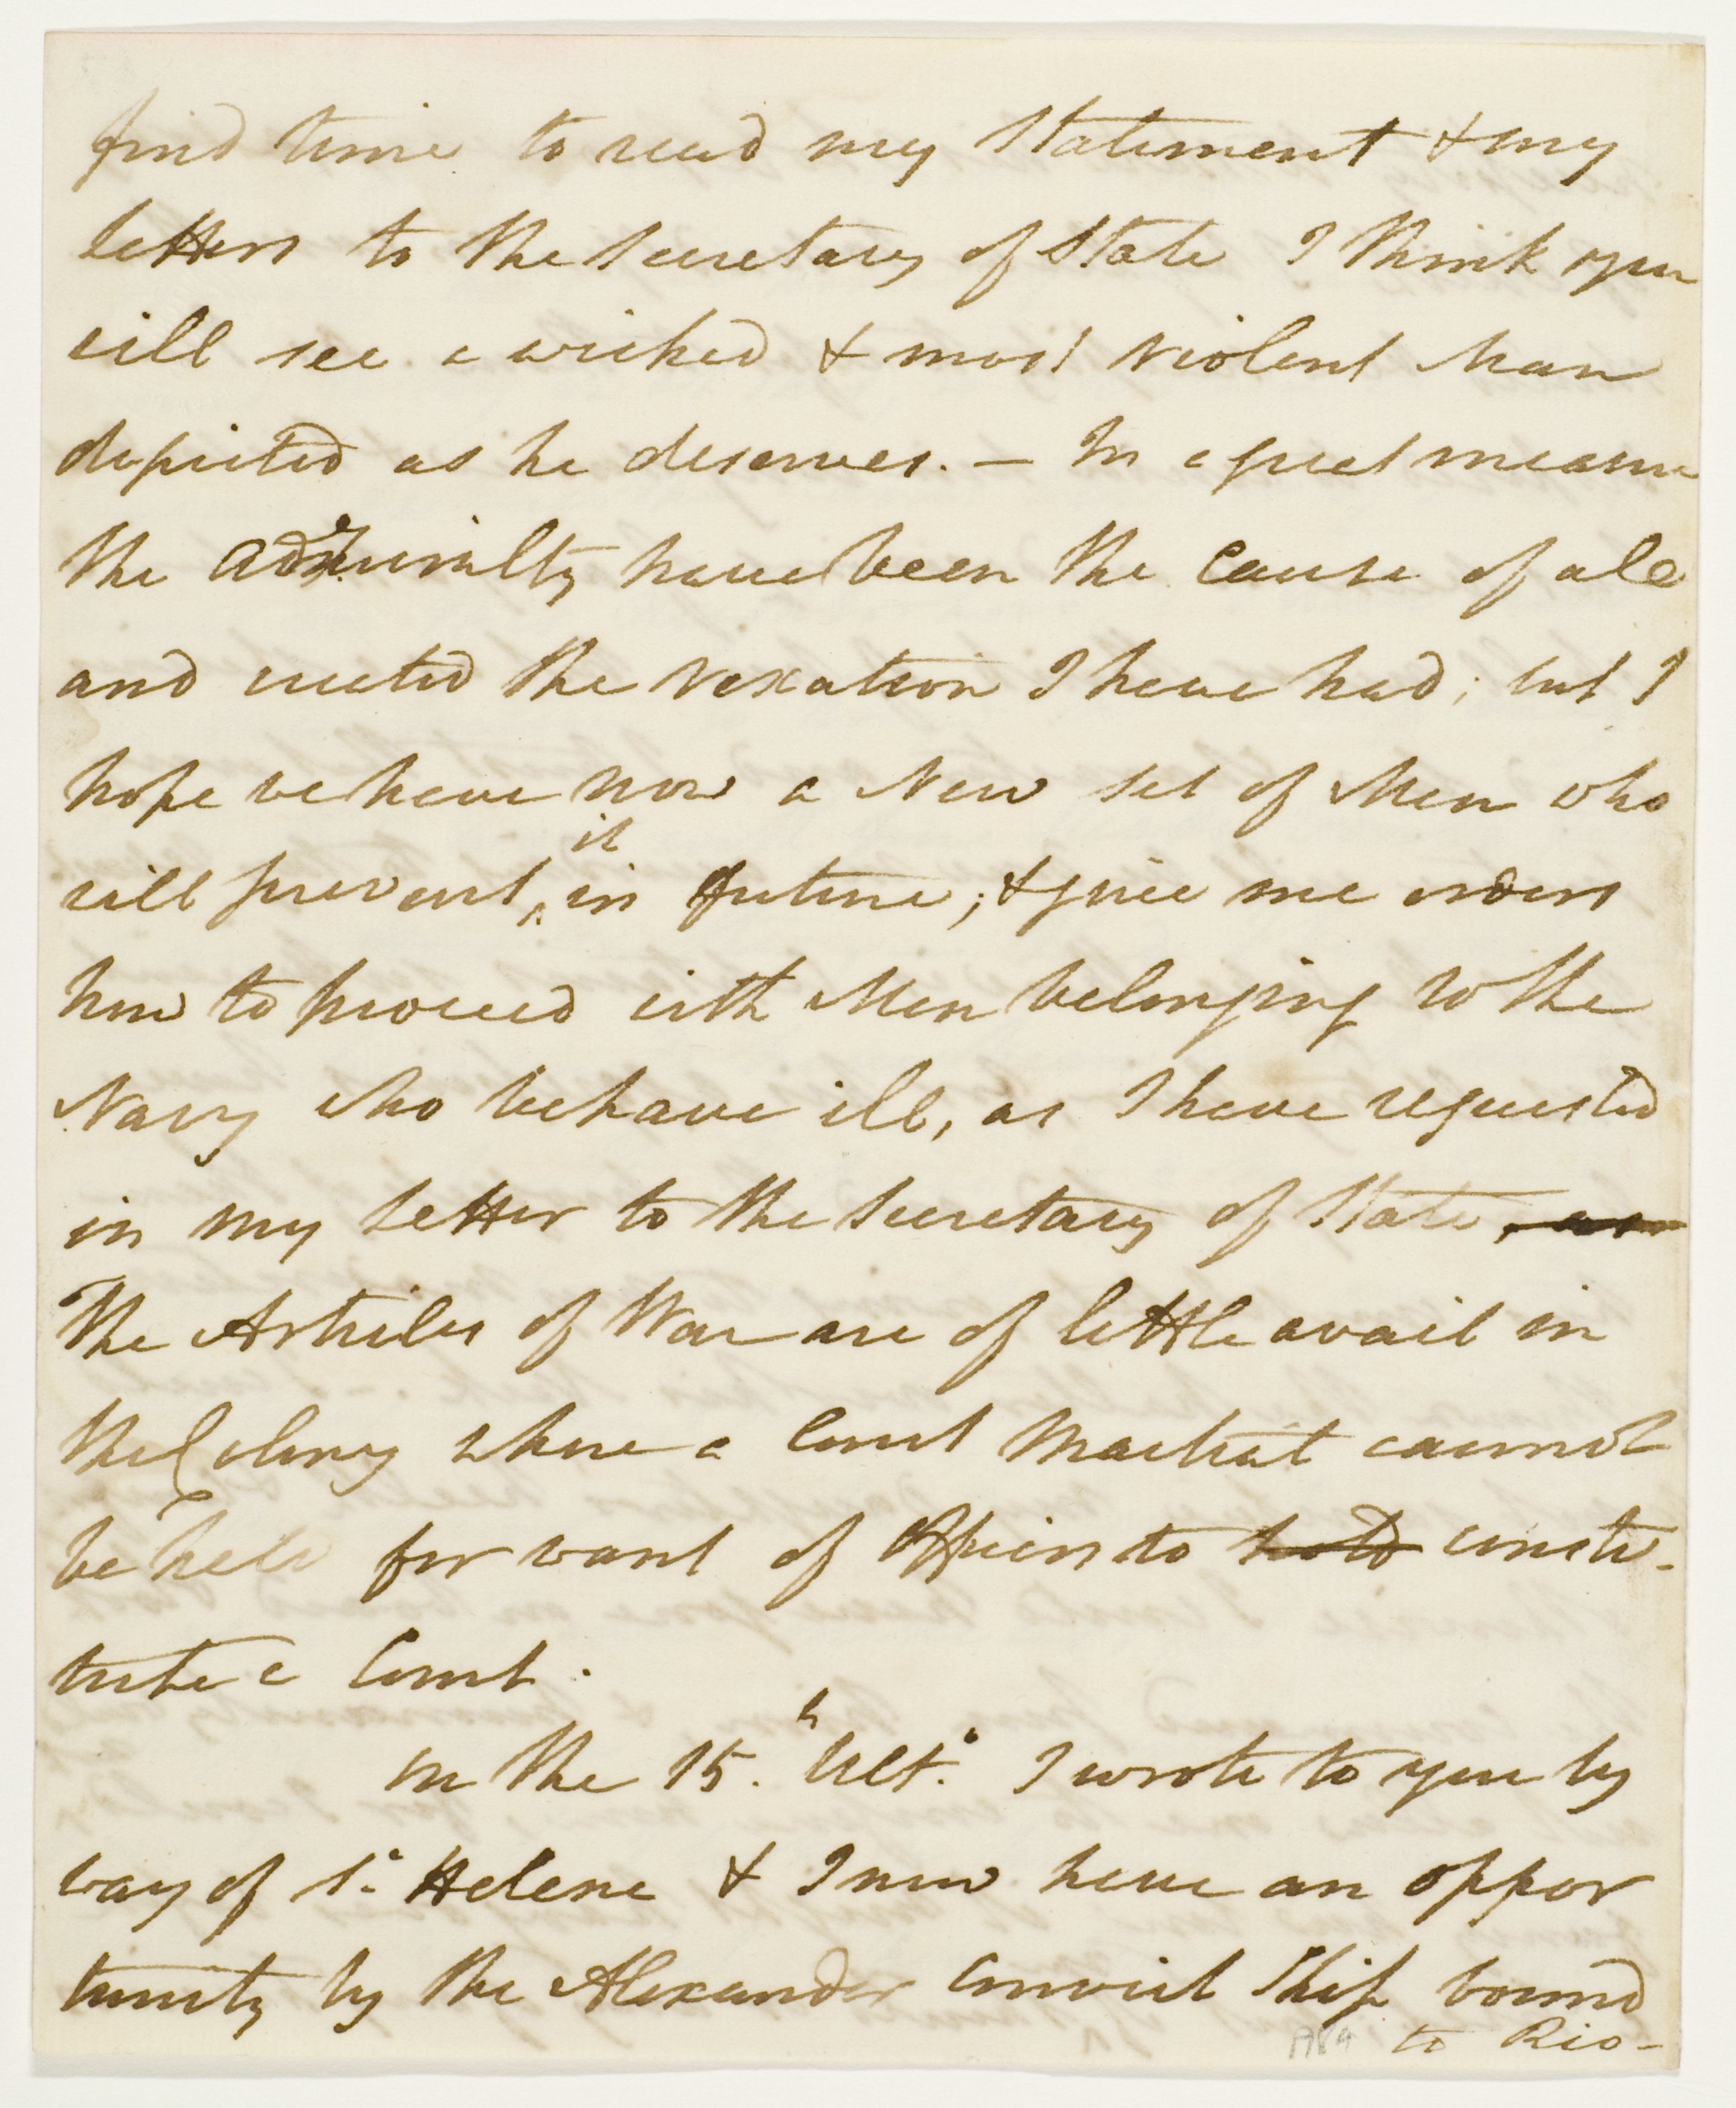 find time to read my Statement & my
letters to the Secretary of State I think you
will see a wicked & most violent Man
depicted as he deserves. — In a great measure
the Admiralty have been the cause of all
and created the vexation I have had; but I
hope we have now a New set of Men who
will prevent it in future; & give me orders
how to proceed with Men belonging to the
Navy who behave ill, as I have requested
in my Letter to the Secretary of State, as
The Articles of War are of little avail in
the Colony where a Court Martial cannot
be held for want of Officers to hold consti-
tute a Court.
On the 15.th Ult.o I wrote to you by
way of St. Helena & I now have an oppor
tunity by the Alexander Convict Ship bound
to Rio-